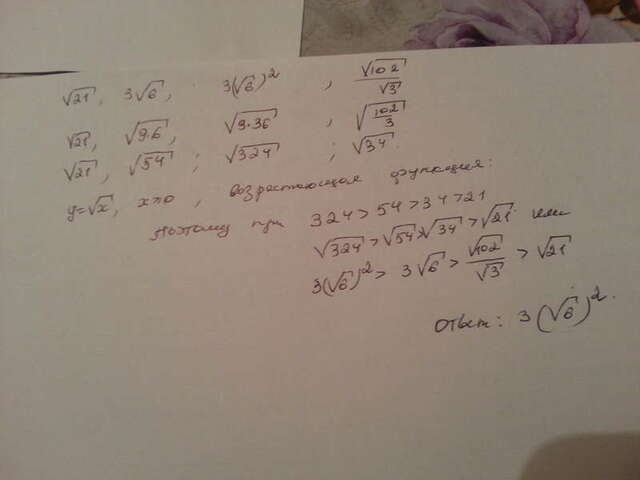 √21, 3√6, 3(√6)², √102/√3
√21, √9·6, √9·36, √102/3
√21, √54; √324; √34.
y=√x, x≥0, возрастающая функция:
Поэтому при 324>54>34>21
√324>√54>√34>√21 или
3(√6)²>3√6>√102/√3>√21
Ответ: 3(√6)².